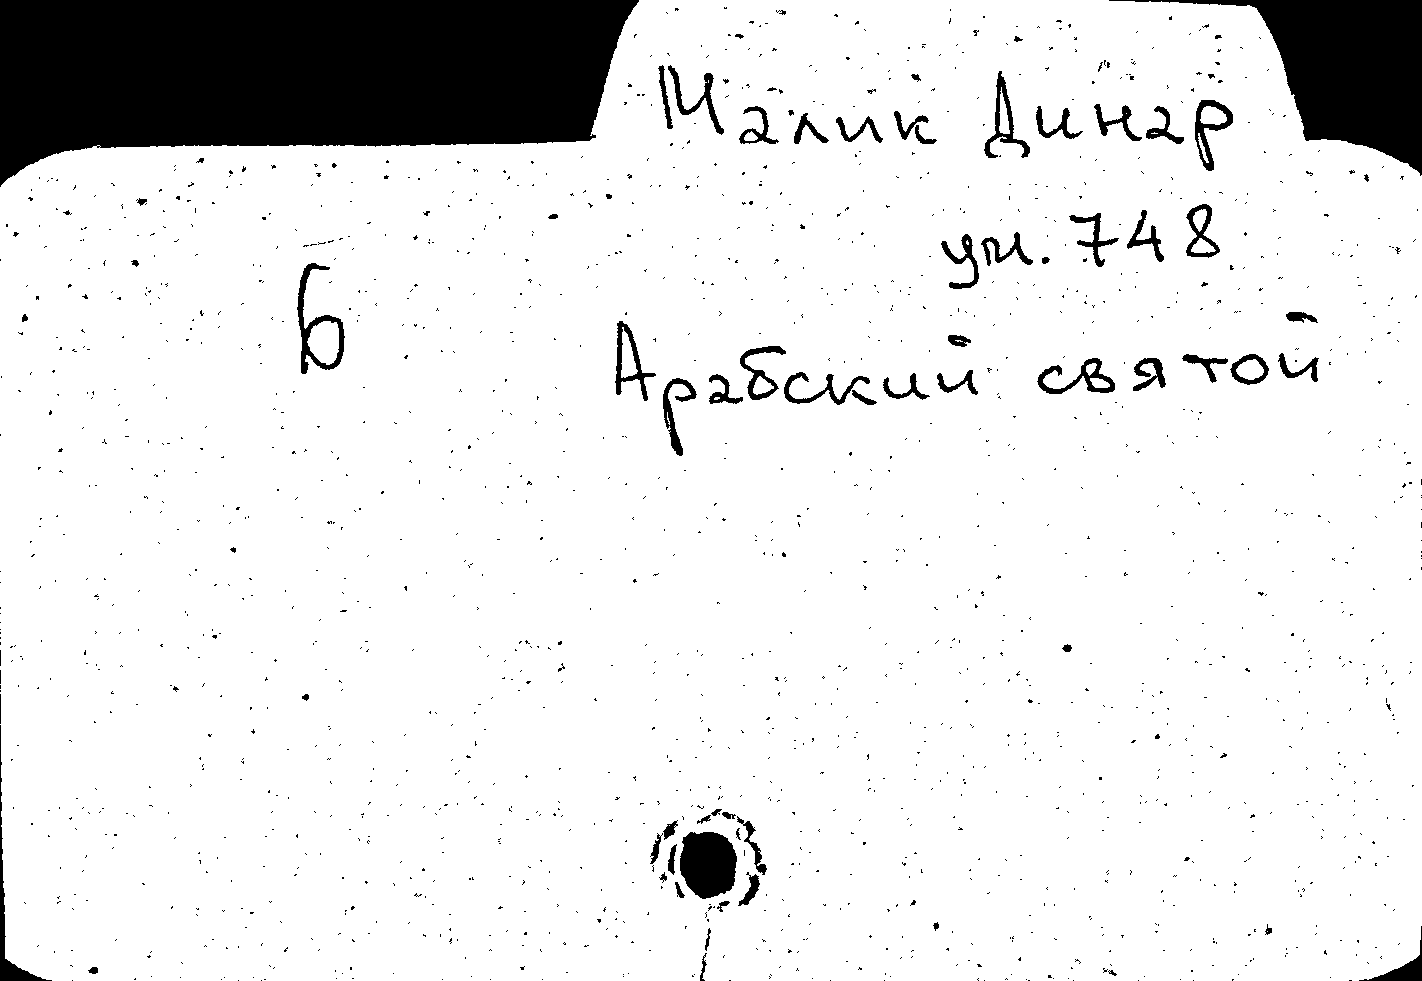 Малик Динар
ум. 748
Б
Арабский святой